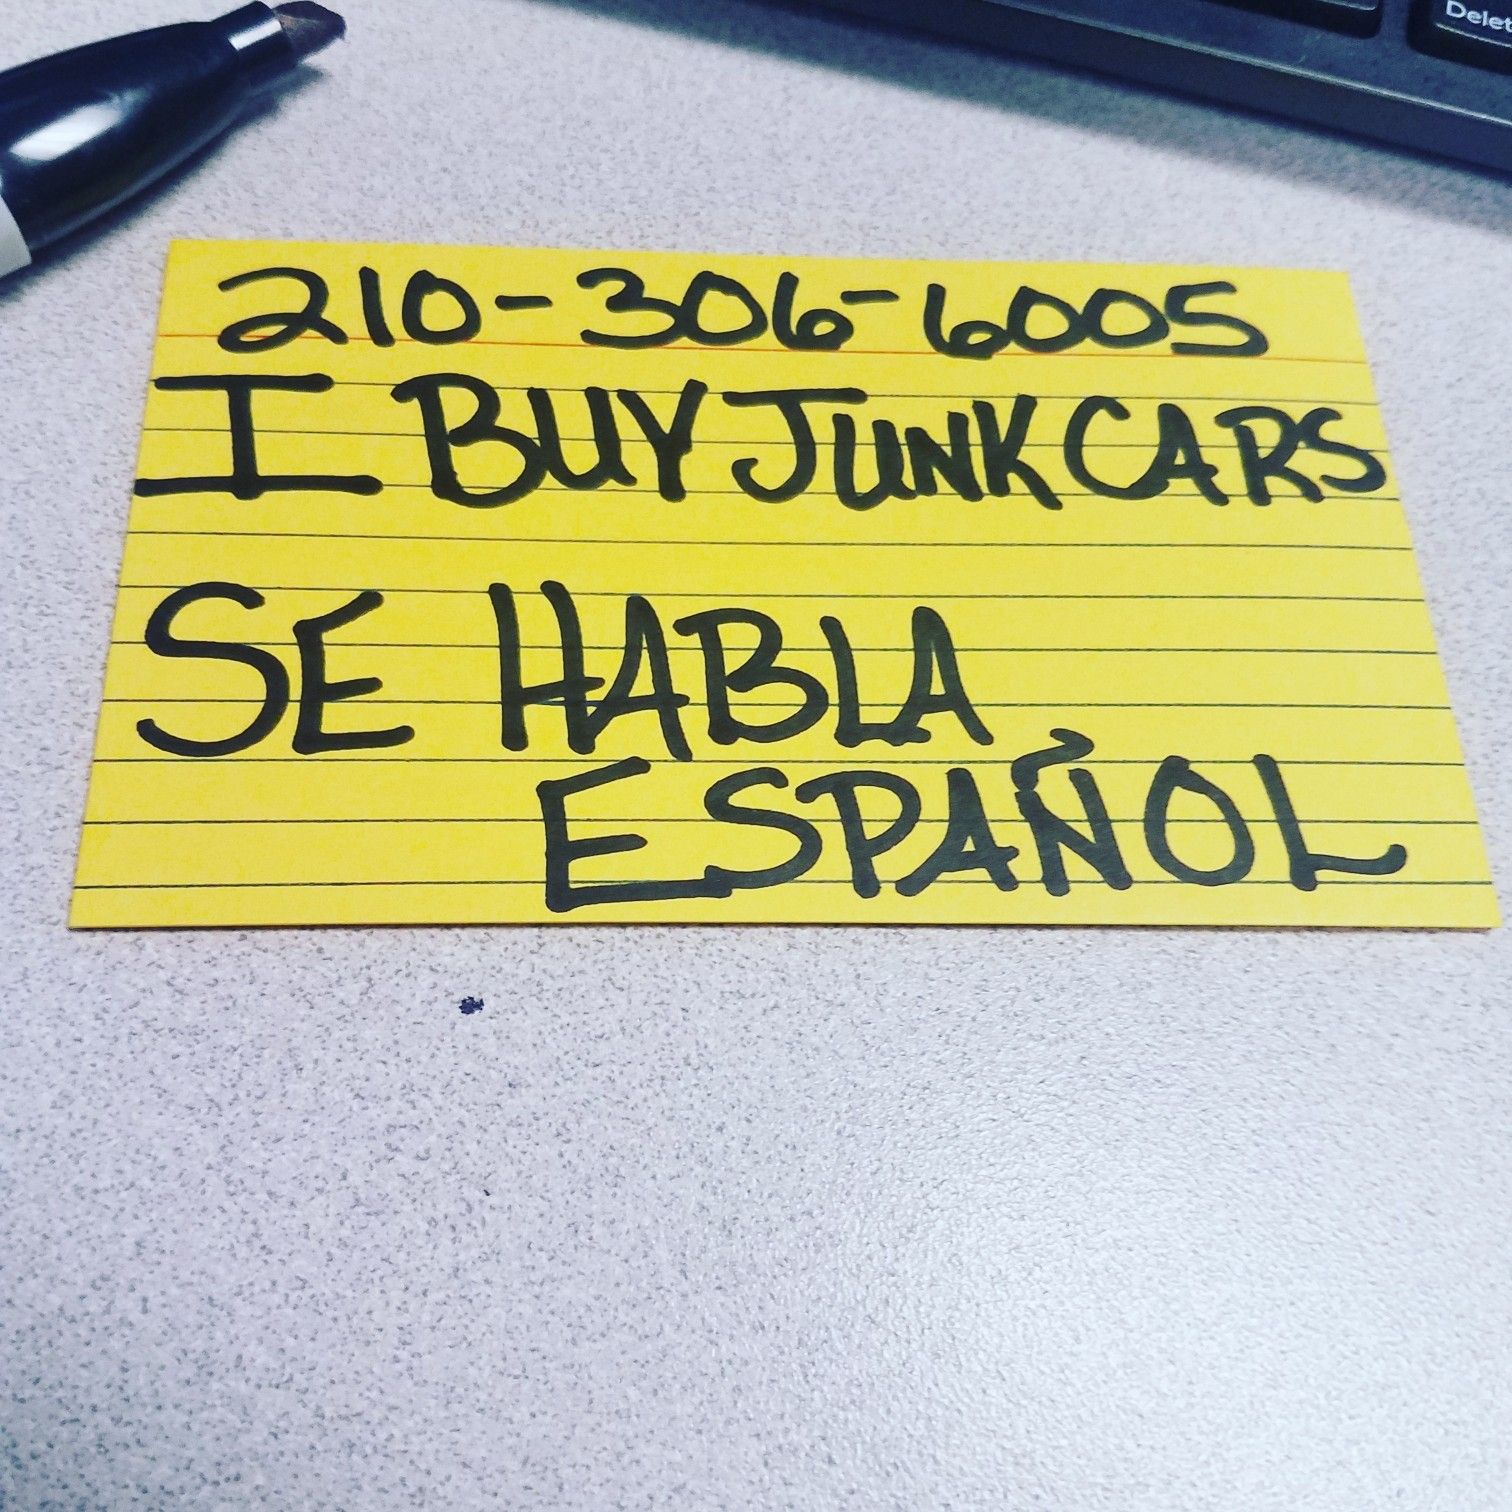 Delet
210-306-6005
I BUY JUNK CARS
SE HABLA
ESPAÑOL